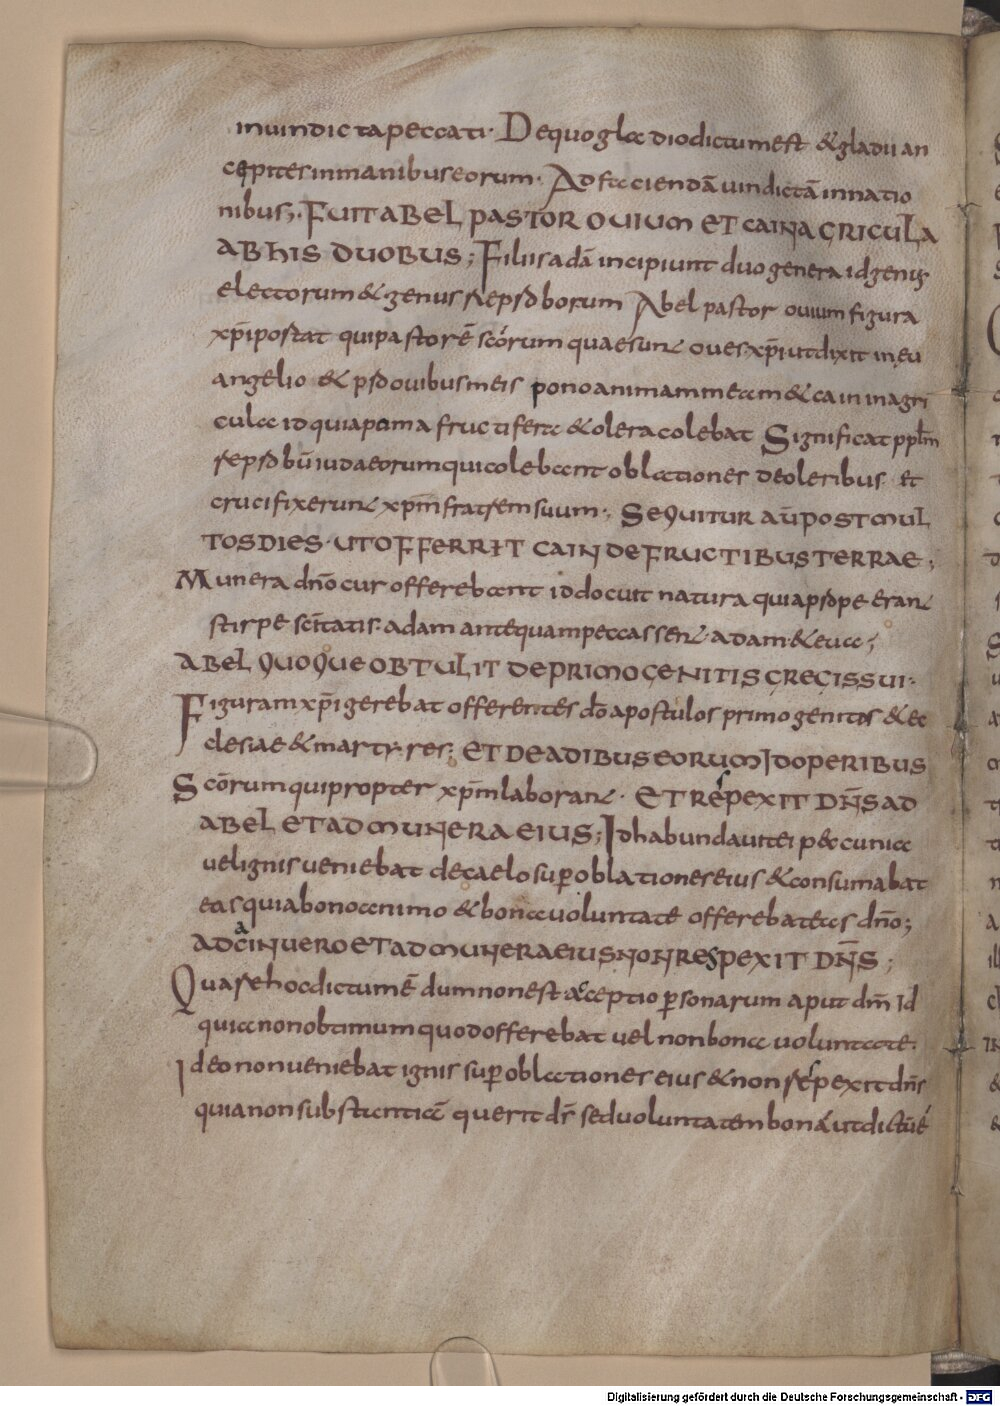 in uindicta peccati. De quo gladio dictum est & gladii an
cepites in manibus eorum. Ad faciendā uindictā in natio
nibus;. FUIT ABEL PASTOR OUIUM ET CAIN AGRICULA
AB HIS DUOBUS; Filii adā incipiunt duo genera id genus
electorum & genus reproborum Abel pastor ouium figura
xp̄i postat qui pastor ē scōrum quae sunt oues xp̄i ut dixit in eu
angelio & pro ouibus meis pono animam meam & cain in agri
cula id quia poma fructifera & olera colebat Significat pplm
reprobū iudaeorum qui colebant oblationes de oleribus et
crucifixerunt xp̄m fratrem suum. SEQUITUR AŪ POST MUL
TOS DIES. UT OFFERRET CAIN DE FRUCTIBUS TERRAE;
Munera dn̄o cur offerebant id docuit natura quia prope erant
stirpe scītatis. adam antequam peccassent. adam & eua;
ABEL QUOQUE OBTULIT DE PRIMOGENITIS GREGIS SUI.
Figuram xp̄i gerebat offerentes dō apostulos primogenitos & ec
clesiae & martyres; ET DE ADIBUS EORUM Id OPERIBUS
Scōrum qui propter xp̄m laborant. ET RESPEXIT DN̄S AD
ABEL ET AD MUNERA EIUS; Id habundauit ei pecunia
uel ignis ueniebat de caelo sup oblationes eius & consumabat
eas quia bono animo & bona uoluntate offerebat eas dn̄o;
AD CAIN UERO ET AD MUNERA EIUS NON RESPEXIT DN̄S;
Quare hoc dictum ē dum non est acceptio p̱sonarum aput dm̄ Id
quia non obtimum quod offerebat uel non bona uoluntate.
Ideo non ueniebat ignis sup oblationes eius & non respexit dn̄s
quia non substantiā querit dr̄ sed uoluntatem bonā ut dictū ē
Digitalisierung gefördert durch die Deutsche Forschungsgemeinschaft - DFG